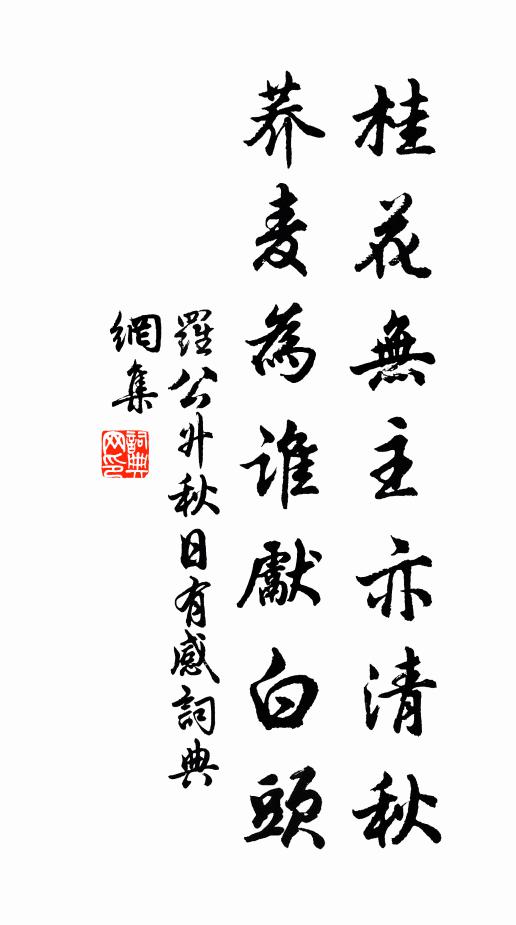 桂花無主亦清秋
荞麦為誰獻白頭
羅公升秋日有感詞典
網集
詞典
网印